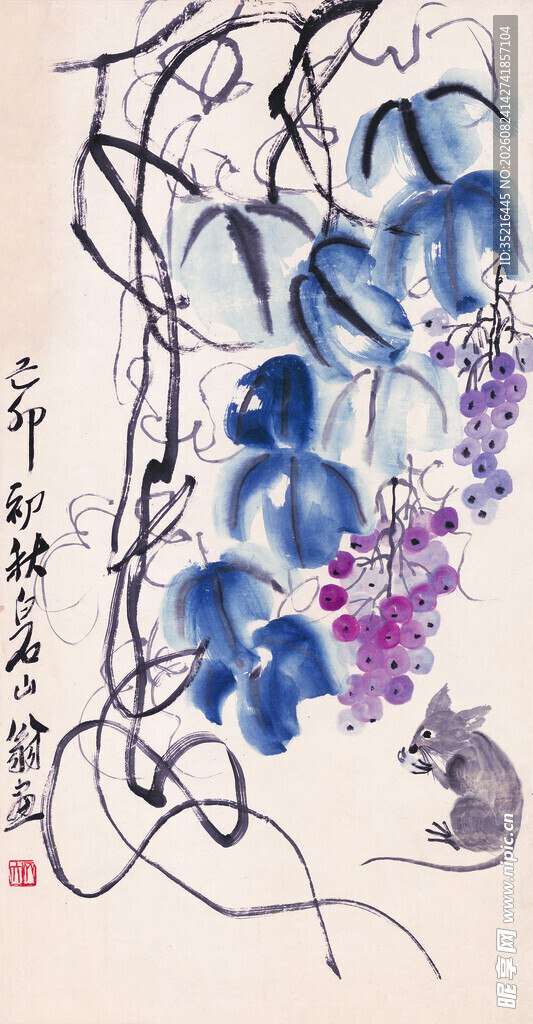 己卯初秋白石山翁画
ID:35216445 NO:20260824142741857104
昵享网 www.nipic.cn